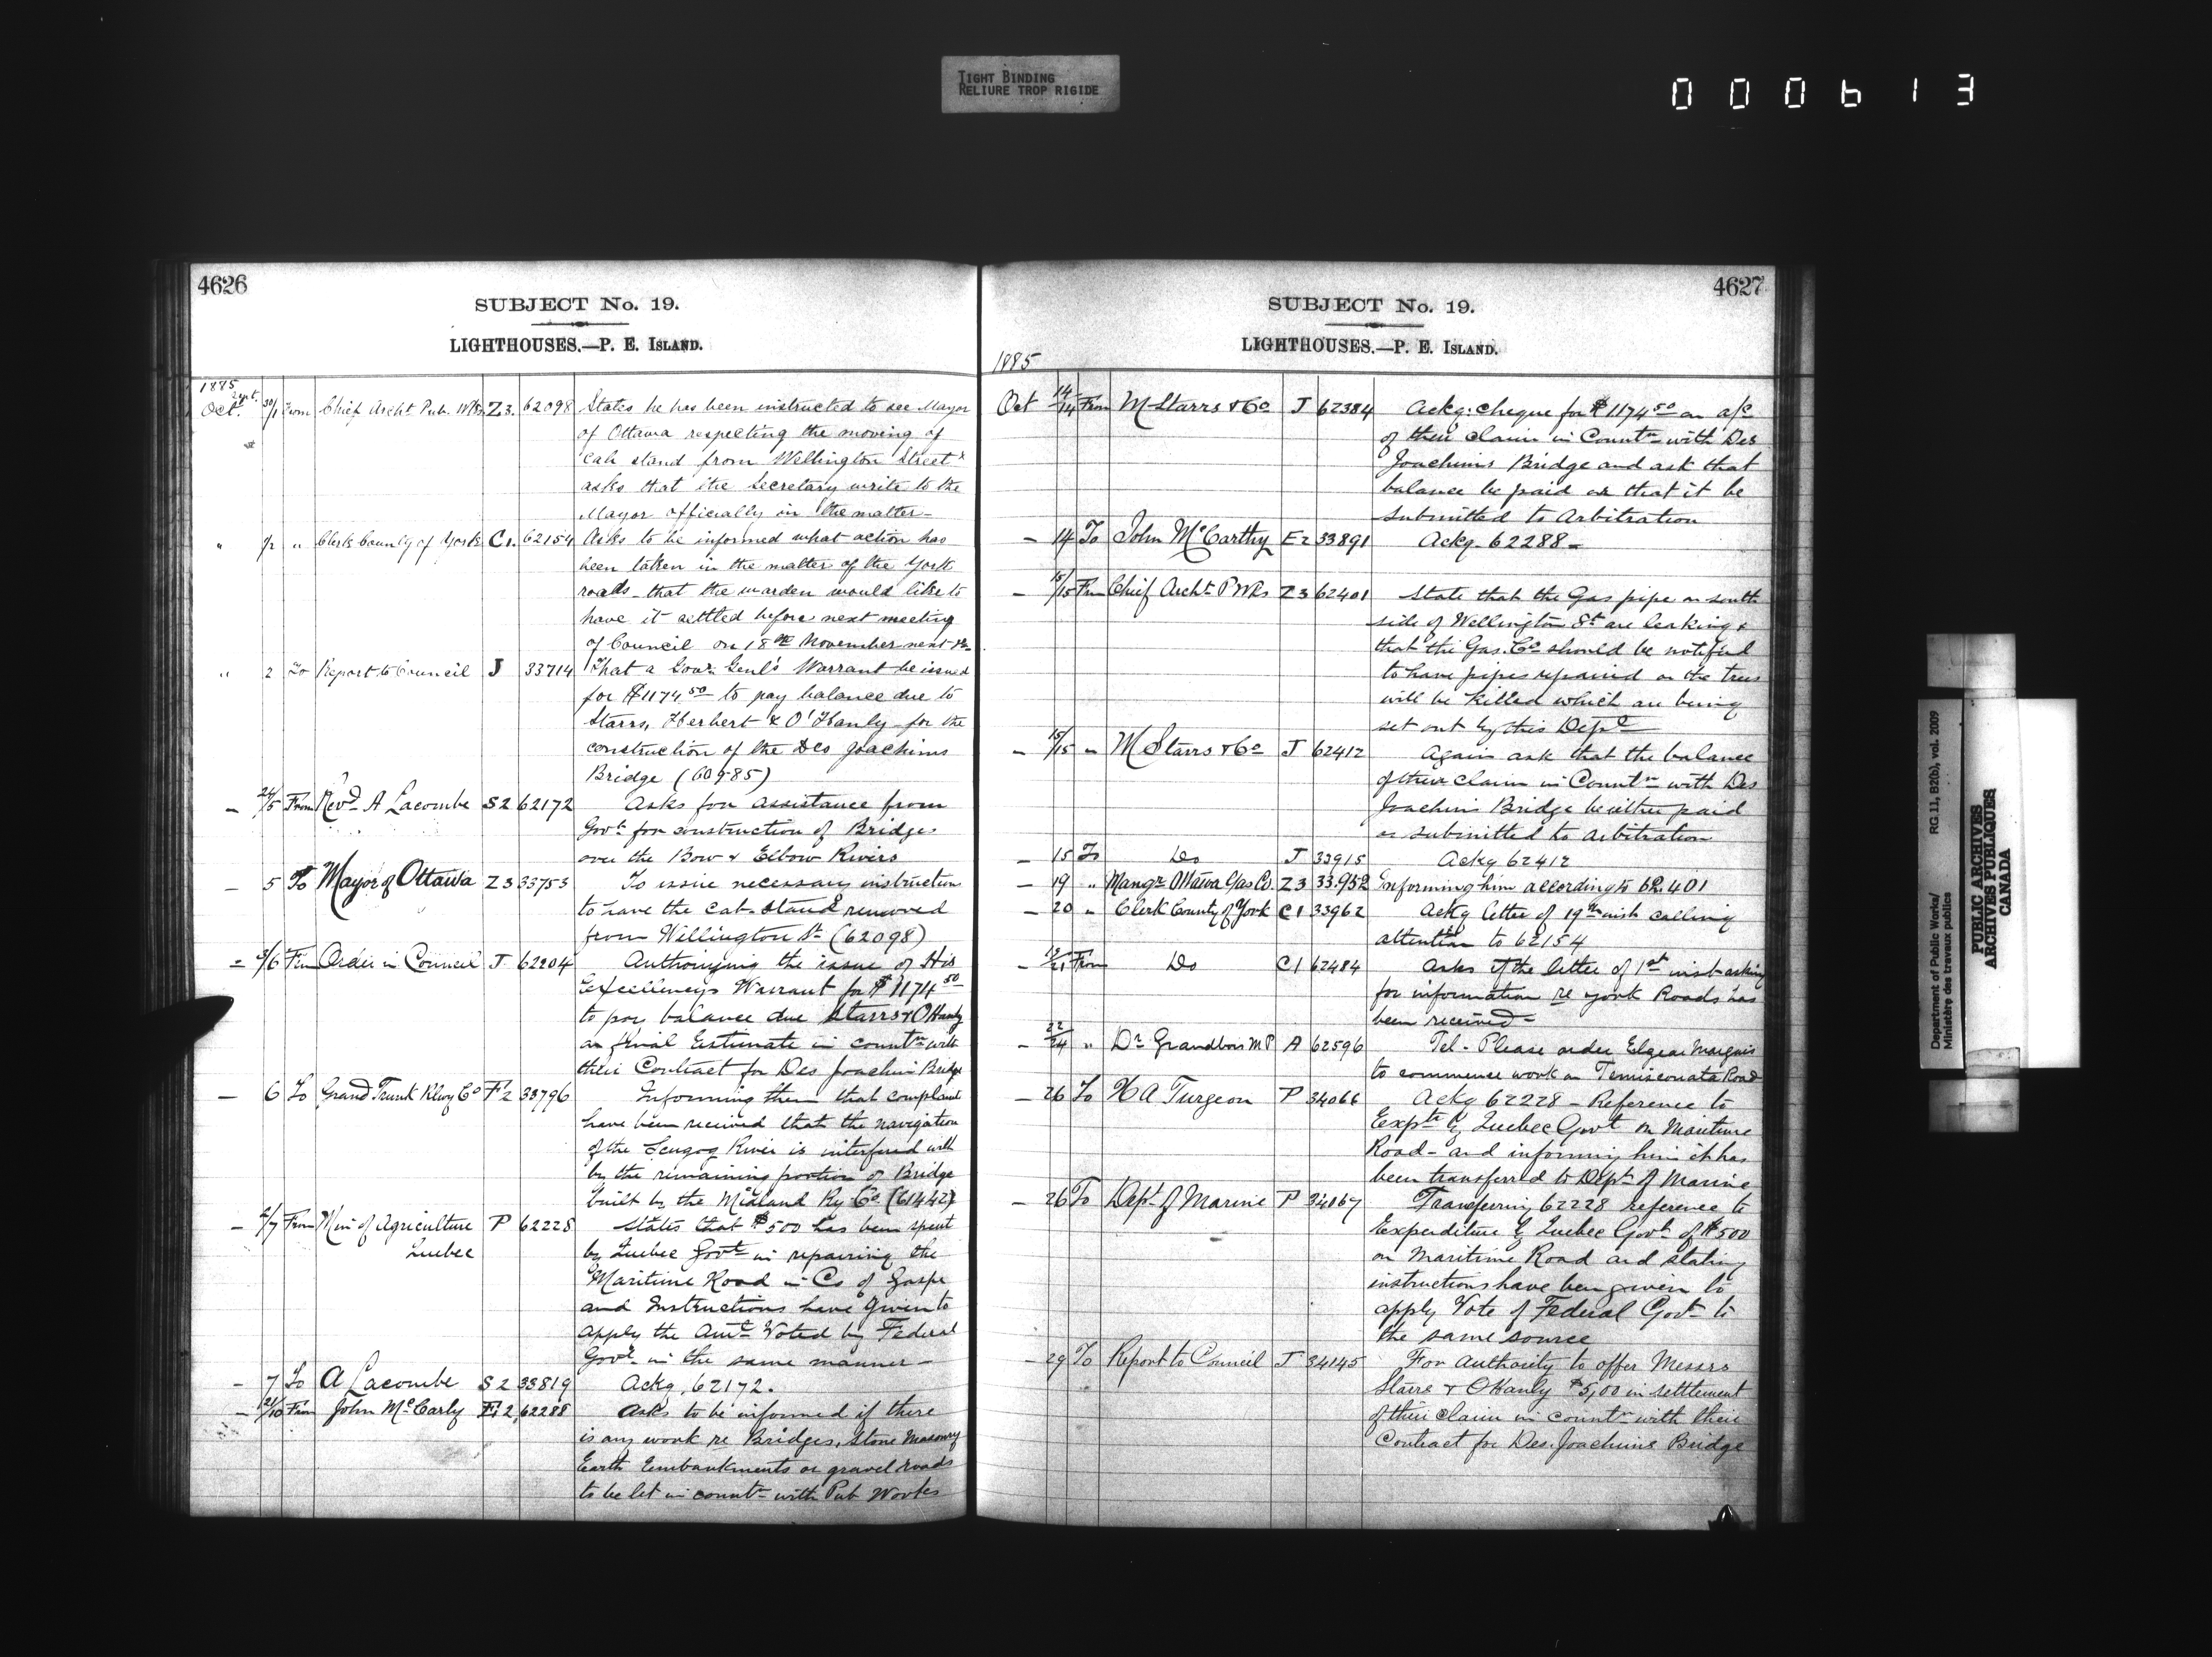 TIGHT BINDING
RELIURE TROP RIGIDE
000613
4626
SUBJECT No. 19.
LIGHTHOUSES.—P. E. ISLAND.
1885
Oct. Sept. 30/1 From Chief Archt. Pub. Wks. Z3. 62098 States he has been instructed to see Mayor
of Ottawa respecting the moving of
cab stand from Wellington Street &
asks that the Secretary write to the
Mayor officially in the matter—
" 1/2 " Clerk County of York C1. 62154 Asks to be informed what action has
been taken in the matter of the York
roads - that the warden would like to
have it settled before next meeting
of Council on 18th November next
" 2 To Report to Council J 33714 That a Govr. Genl's Warrant be issued
for $1174 50 to pay balance due to
Starrs, Herbert & O'Hanly for the
construction of the Des Joachims
Bridge (60985)
— 24/5 From Revd. A Lacombe S2 62172 Asks for assistance from
Govt. for construction of Bridges
over the Bow & Elbow Rivers
— 5 To Mayor of Ottawa Z3 33753 To issue necessary instruction
to have the cab-stand removed
from Wellington St (62098)
= 3/6 From Order in Council J 62204 Authorizing the issue of His
Excellencys Warrant for $1174 50
to pay balance due Starrs & O'Hanly
on final Estimate in countn with
their Contract for Des Joachim Bridge
— 6 To Grand Trunk Rlwy Co F2 33796 Informing them that complaint
have been received that the navigation
of the Scugog River is interfered with
by the remaining portion of Bridge
built by the Midland Ry Co. (61442)
— 2/7 From Min of Agriculture P 62228 States that $500 has been spent
Quebec by Quebec Govt in repairing the
Maritime Road in Co of Gaspe
and Instructions have given to
apply the Amt Voted by Federal
Govt in the same manner—
— 7 To A Lacombe S2 33819 Ackg. 62172.
— From John McCarty E2 62288 Asks to be informed if there
is any work re Bridges, Stone Masonry
Earth Embankments or gravel roads
to be let in countn with Pub Works
4627
SUBJECT No. 19.
LIGHTHOUSES.—P. E. ISLAND.
1885
Oct 14/14 From M Starrs & Co J 62384 Ackg: cheque for $1174 50 on a/c
of their claim in Countn with Des
Joachims Bridge and ask that
balance be paid or that it be
submitted to Arbitration
— 14 To John McCarthy E2 33891 Ackg. 62288—
— 15/15 From Chief Archt P Wks Z3 62401 State that the Gas pipe on south
side of Wellington St are leaking &
that the Gas. Co should be notified
to have pipes repaired or the trees
will be killed which are being
set out by this Dept
— 15/15 " M Starrs & Co J 62412 Again ask that the balance
of their claim in Countn with Des
Joachim Bridge be either paid
or submitted to arbitration
— 15 To Do J 33915 Ackg 62412
— 19 " Mangr Ottawa Gas Co. Z3 33.952 Informing him according to 62.401
— 20 " Clerk County of York C1 33962 Ackg letter of 19th inst calling
attention to 62154
— 19/21 From Do C1 62484 Asks if the letter of 1st inst asking
for information re York Roads has
been received—
— 22/24 " Dr Grandbois MP A 62596 Tel - Please order Elgear Marquis
to commence work on Temisconata Road
— 26 To H A Turgeon P 34066 Ackg 62228 - Reference to
Expte by Quebec Govt on Maritime
Road - and informing him it has
been transferred to Dept of Marine
— 26 To Dept of Marine P 34067 Transferring 62228 reference to
Expenditure by Quebec Govt of $500
on Maritime Road and stating
instructions have been given to
apply Vote of Federal Govt to
the same source
— 29 To Report to Council J 34145 For Authority to offer Messrs
Starrs & O'Hanly $5,00 in settlement
of their claim in countn with their
Contract for Des Joachims Bridge
Department of Public Works/ RG 11, B2(b), vol. 2009
Ministère des travaux publics
PUBLIC ARCHIVES
ARCHIVES PUBLIQUES
CANADA